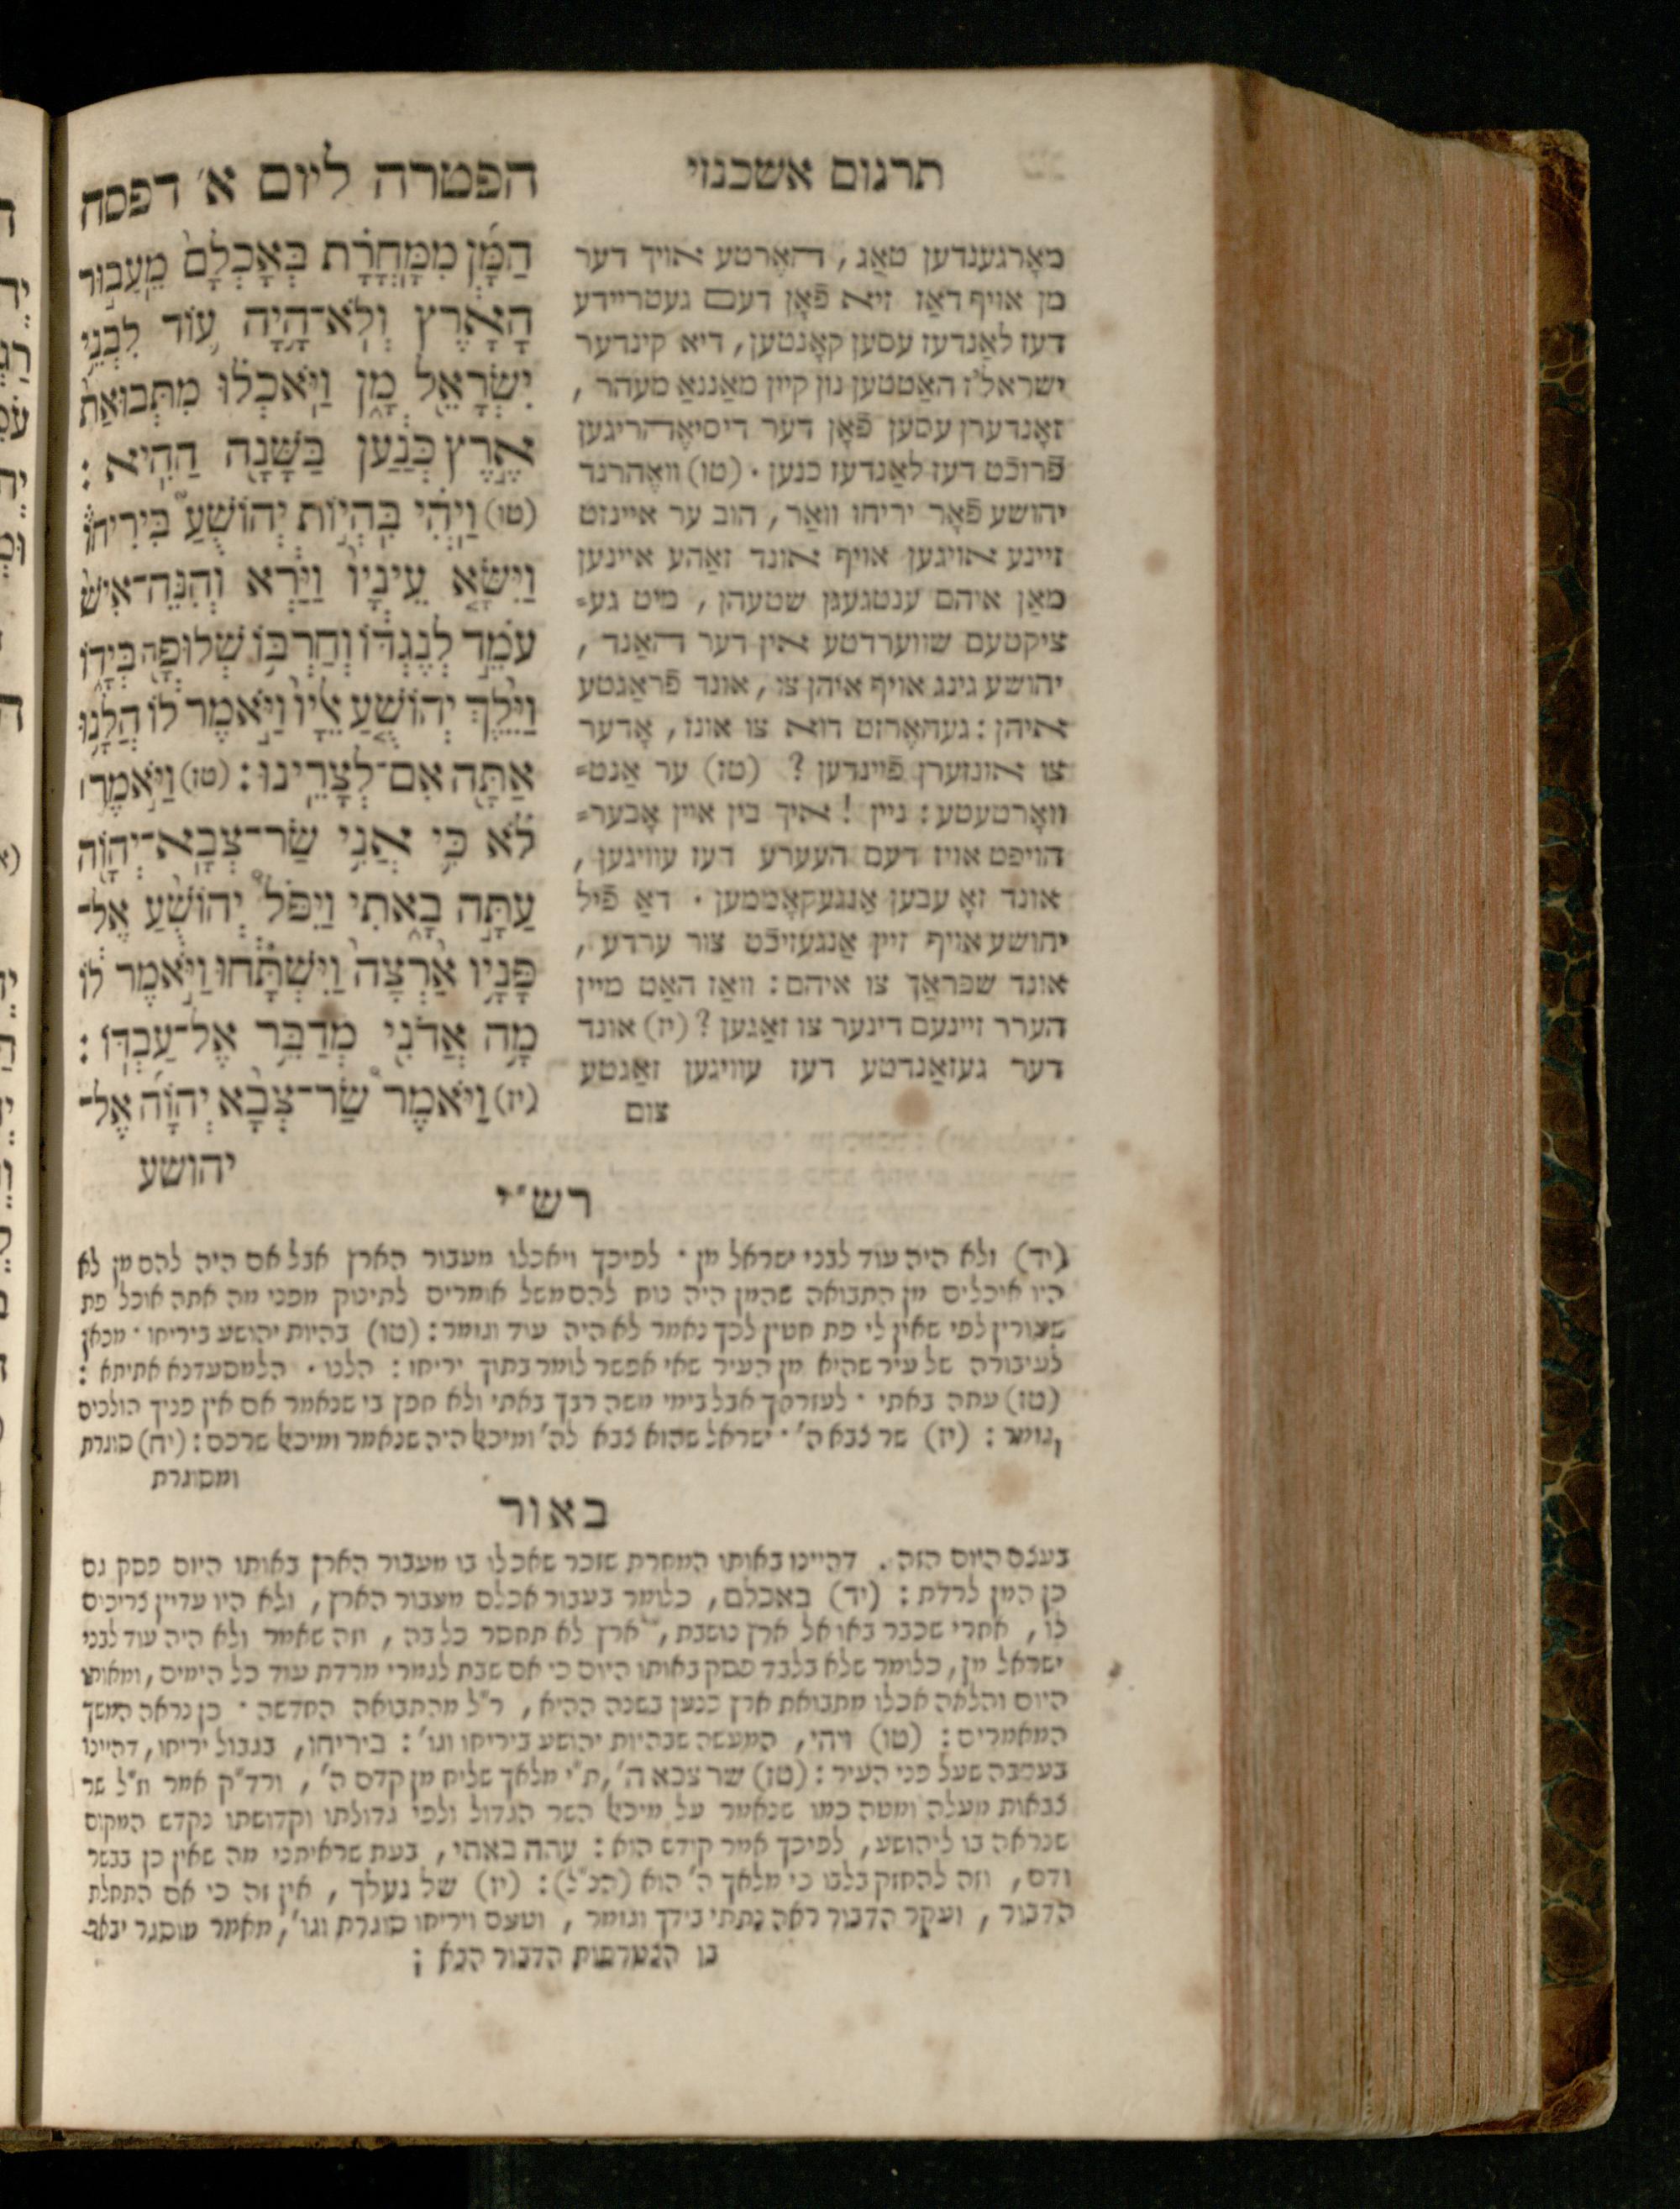 תרגום אשכנזי
הפטרה ליום א׳ דפסח
הַמָּ֜ן מִֽמָּחֳרָ֗ת בְּאָכְלָם֙ מֵעֲב֣וּר
הָאָ֔רֶץ וְלֹא־הָ֥יָה ע֛וֹד לִבְנֵ֥י
יִשְׂרָאֵ֖ל מָ֑ן וַיֹּאכְל֗וּ מִתְּבוּאַת֙
אֶ֣רֶץ כְּנַ֔עַן בַּשָּׁנָ֖ה הַהִֽיא :
(טו) וַיְהִ֗י בִּֽהְי֣וֹת יְהוֹשֻׁ֘עַ֮ בִּירִיחוֹ֒
וַיִּשָּׂ֤א עֵינָיו֙ וַיַּ֔רְא וְהִנֵּה־אִישׁ֙
עֹמֵ֣ד לְנֶגְדּ֔וֹ וְחַרְבּ֥וֹ שְׁלוּפָ֖ה בְּיָד֑וֹ
וַיֵּ֨לֶךְ יְהוֹשֻׁ֤עַ אֵלָיו֙ וַיֹּ֣אמֶר ל֔וֹ הֲלָ֥נוּ
אַתָּ֖ה אִם־לְצָרֵֽינוּ : (טז) וַיֹּ֣אמֶר ׀
לֹ֗א כִּ֛י אֲנִ֥י שַׂר־צְבָֽא־יְהוָ֖ה
עַתָּ֣ה בָ֑אתִי וַיִּפֹּל֩ יְהוֹשֻׁ֨עַ אֶל־
פָּנָ֥יו אַ֙רְצָה֙ וַיִּשְׁתָּ֔חוּ וַיֹּ֣אמֶר ל֔וֹ
מָ֥ה אֲדֹנִ֖י מְדַבֵּ֥ר אֶל־עַבְדּֽוֹ :
(יז) וַיֹּ֩אמֶר֩ שַׂר־צְבָ֨א יְהוָ֜ה אֶל־
יהושע
מאָרגענדען טאַג, האָרטע אויך דער
מן אויף דאַז זיא פֿאָן דעם געטריידע
דעז לאַנדעז עסען קאָנטען, דיא קינדער
ישראל'ז האַטטען נון קיין מאַננאַ מעהר,
זאָנדערן עסען פֿאָן דער דיסיאָהריגען
פֿרוכֿט דעז לאַנדעז כנען. (טו) וואָהרנד
יהושע פֿאָר יריחו וואַר, הוב ער איינזט
זיינע אויגען אויף אונד זאַהע איינען
מאַן איהם ענטגעגן שטעהן, מיט גע=
ציקטעם שווערדטע אין דער האַנד,
יהושע גינג אויף איהן צו, אונד פֿראַגטע
איהן : געהאָרזט דוא צו אונז, אָדער
צו אונזערן פֿיינדען ? (טז) ער אַנט=
וואָרטעטע : ניין ! איך בין איין אָבער=
הויפט אויז דעם העערע דעז עוויגען,
אונד זאָ עבען אַנגעקאָממען . דאַ פֿיל
יהושע אויף זיין אַנגעזיכֿט צור ערדע,
אונד שפראַך צו איהם : וואַז האַט מיין
הערר זיינעם דינער צו זאַגען ? (יז) אונד
דער געזאַנדטע דעז עוויגען זאַגטע
צום
רש״י
(יד) ולא היה עוד לבני ישראל מן . לפיכך ויאכלו מעבור הארץ אבל אם היה להם מן לא
היו אוכלים מן התבואה שהמן היה נוח להם משל אומרים לתינוק מפני מה אתה אוכל פת
שעורין לפי שאין לי פת חטין לכך נאמר לא היה עוד וגומר : (טו) בהיות יהושע ביריחו . מכאן
לעיבורה של עיר שהיא מן העיר שאי אפשר לומר בתוך יריחו : הלנו . הלמסעדנא אתיתא :
(טז) עתה באתי . לעזרתך אבל בימי משה רבך באתי ולא חפץ בי שנאמר אם אין פניך הולכים
וגומר : (יז) שר צבא ה׳ . ישראל שהוא צבא לה׳ ומיכאל היה שנאמר ומיכאל שרכם : (יח) סוגרת
ומסוגרת
באור
בעצם היום הזה. דהיינו באותו המחרת שזכר שאכלו בו מעבור הארץ באותו היום פסק גם
כן המן לרדת : (יד) באכלם, כלומר בעבור אכלם מעבור הארץ, ולא היו עדיין צריכים
לו, אחרי שכבר באו אל ארץ נושבת, ארץ לא תחסר כל בה, וזה שאמר ולא היה עוד לבני
ישראל מן, כלומר שלא בלבד פסק באותו היום כי אם שבת לגמרי מרדת עוד כל הימים, ומאותו
היום והלאה אכלו מתבואת ארץ כנען בשנה ההיא, ר״ל מהתבואה החדשה . כן נראה המשך
המאמרים : (טו) ויהי, המעשה שבהיות יהושע ביריחו וגו׳ : ביריחו, בגבול יריחו, דהיינו
שעל פני העיר : (טז) שר צבא ה׳, ת״י מלאך שליח מן קדם ה׳, ורד״ק אמר ח״ל שר
צבאות מעלה ומטה כמו שנאמר על מיכאל השר הגדול ולפי גדולתו וקדושתו נקדש המקום
שנראה בו ליהושע, לפיכך אמר קודש הוא : עתה באתי, בעת שראיתני מה שאין כן בבשר
ודם, וזה להחזק בלבו כי מלאך ה׳ הוא (הנ״ל) : (יז) של נעלך, אין זה כי אם התחלת
הדבור, ועקר הדבור ראה נתתי בידך וגומר, וטעם ויריחו סוגרת וגו׳, מאמר מוסגר יבאר
בו הדבור הבא :